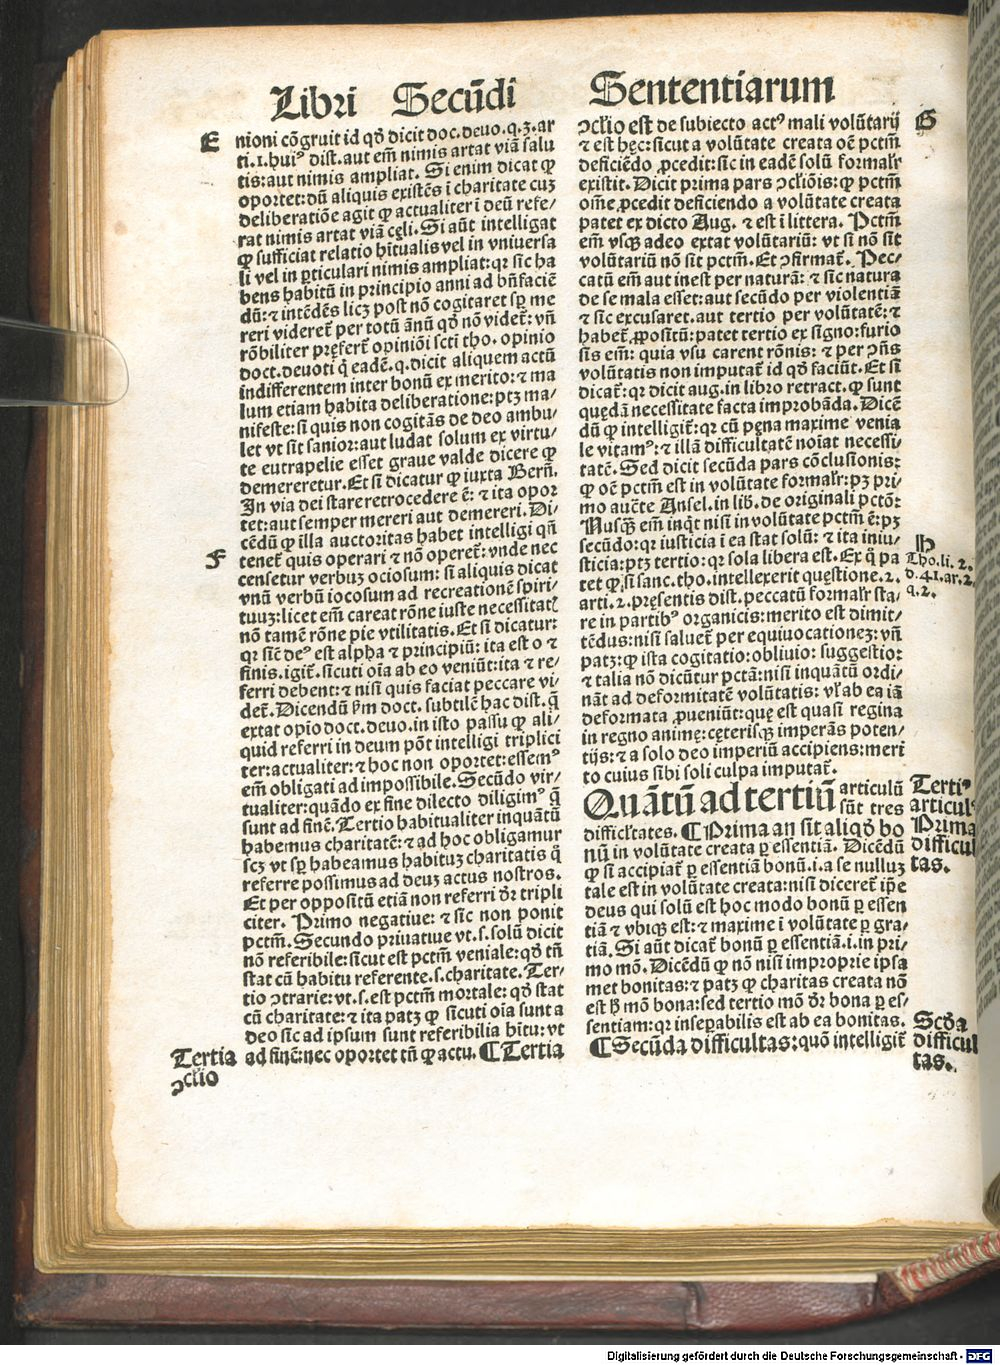 Libri Secūdi Sententiarum
E
nioni cōgruit id qd̄ dicit doc. deuo. q. 3. ar
ti. 1. huiꝰ dist. aut em̄ nimis artat viā salu
tis: aut nimis ampliat. Si enim dicat ꝙ
oportet: dū aliquis existēs ī charitate cuꝫ
deliberatiōe agit ꝙ actualiter ī deū refe/
rat nimis artat viā cęli. Si aūt intelligat
ꝙ sufficiat relatio hītualis vel in vniuersa
li vel in ꝑticulari nimis ampliat: qꝛ sic ha
bens habitū in principio anni ad bn̄faciē
dū: ⁊ intēdēs licꝫ post nō cogitaret sꝑ me
reri videret̄ per totū ānū qd̄ nō videt̄: vn̄
rōbiliter pręfert̄ opiniōi scti tho. opinio
doct. deuoti q̄ eadē. q. dicit aliquem actū
indifferentem inter bonū ex merito: ⁊ ma
lum etiam habita deliberatione: ptꝫ ma/
nifeste: si quis non cogitās de deo ambu/
let vt sit sanior: aut ludat solum ex virtu/
te eutrapelie esset graue valde dicere ꝙ
demereretur. Et si dicatur ꝙ iuxta Bern̄.
In via dei stare retrocedere ē: ⁊ ita opor
tet: aut semper mereri aut demereri. Di/
cēdū ꝙ illa auctoritas habet intelligi qn̄
F
tenet̄ quis operari ⁊ nō operet̄: vnde nec
censetur verbuꝫ ociosum: si aliquis dicat
vnū verbū iocosum ad recreationē spiri/
tuuꝫ: licet em̄ careat rōne iuste necessitatꝭ
nō tamē rōne pie vtilitatis. Et si dicatur:
qꝛ sic̄ deꝰ est alpha ⁊ principiū: ita est o ⁊
finis. igit̄. sicuti oīa ab eo veniūt: ita ⁊ re/
ferri debent: ⁊ nisi quis faciat peccare vi/
det̄. Dicendū ẜm doct. subtilē hac dist. q̄
extat opīo doct. deuo. in isto passu ꝙ ali/
quid referri in deum pōt intelligi triplici
ter: actualiter: ⁊ hoc non oportet: essemꝰ
em̄ obligati ad impossibile. Secūdo vir/
tualiter: quādo ex fine dilecto diligimꝰ q̄
sunt ad finē. Tertio habitualiter inquātū
habemus charitatē: ⁊ ad hoc obligamur
scꝫ vt sꝑ habeamus habituꝫ charitatis q̊
referre possimus ad deuꝫ actus nostros.
Et per oppositū etiā non referri dr̄ tripli
citer. Primo negatiue: ⁊ sic non ponit
pctm̄. Secundo priuatiue vt. s. solū dicit
nō referibile: sicut est pctm̄ veniale: qd̄ tn̄
stat cū habitu referente. s. charitate. Ter/
tio ↄtrarie: vt. s. est pctm̄ mortale: qd̄ stat
cū charitate: ⁊ ita patꝫ ꝙ sicuti oīa sunt a
deo sic ad ipsum sunt referibilia hītu: vt
ad finē: nec oportet tn̄ ꝙ actu. ¶ Tertia
Tertia
ↄclīo
ↄclīo est de subiecto actꝰ mali volūtarij
G
⁊ est hęc: sicut a volūtate creata oē pctm̄
deficiēdo ꝓcedit: sic in eadē solū formalr̄
existit. Dicit prima pars ↄclīōis: ꝙ pctm̄
om̄e ꝓcedit deficiendo a volūtate creata
patet ex dicto Aug. ⁊ est ī littera. Pctm̄
em̄ vsqꝫ adeo extat volūtariū: vt si nō sit
volūtariū nō sit pctm̄. Et ↄfirmat̄. Pec/
catū em̄ aut inest per naturā: ⁊ sic natura
de se mala esset: aut secūdo per violentiā
⁊ sic excusaret. aut tertio per volūtatē: ⁊
habet̄ ꝓpositū: patet tertio ex signo: furio
sis em̄: quia vsu carent rōnis: ⁊ per ↄn̄s
volūtatis non imputat̄ id qd̄ faciūt. Et si
dicat̄: qꝛ dicit aug. in libro retract. ꝙ sunt
quędā necessitate facta improbāda. Dicē
dū ꝙ intelligit̄: qꝛ cū pęna maxime venia
le vitamꝰ: ⁊ illā difficultatē noīat necessi/
tatē. Sed dicit secūda pars cōclusionis:
ꝙ oē pctm̄ est in volūtate formalr̄: pꝫ pri/
mo auc̄te Ansel. in lib. de originali pctō:
Nusqꝫ̄ em̄ inqt̄ nisi in volūtate pctm̄ ē: pꝫ
secūdo: qꝛ iusticia ī ea stat solū: ⁊ ita iniu/
sticia: ptꝫ tertio: qꝛ sola libera est. Ex q̊ pa
H
Tho. li. 2.
d. 41. ar. 2.
q. 2.
tet ꝙ, si sanc. tho. intellexerit quęstione. 2.
arti. 2. pręsentis dist. peccatū formalr̄ sta/
re in partibꝰ organicis: merito est dimit/
tēdus: nisi saluet̄ per equiuocationeꝫ: vn̄
patꝫ: ꝙ ista cogitatio: obliuio: suggestio:
⁊ talia nō dicūtur pctā: nisi inquātū ordi/
nāt ad deformitatē volūtatis: vl̄ ab ea iā
deformata ꝓueniūt: quę est quasi regina
in regno animę: cęterisqꝫ imperās poten/
tijs: ⁊ a solo deo imperiū accipiens: meri
to cuius sibi soli culpa imputat̄.
Quātū ad tertiū articulū
sūt tres
Tertiꝰ
articulꝰ
difficl̄tates. ¶ Prima an sit aliqd̄ bo
nū in volūtate creata ꝑ essentiā. Dicēdū
Prima
difficul
tas.
ꝙ si accipiat̄ ꝑ essentiā bonū. i. a se nulluꝫ
tale est in volūtate creata: nisi diceret̄ ip̄e
deus qui solū est hoc modo bonū ꝑ essen
tiā ⁊ vbiqꝫ est: ⁊ maxime ī volūtate ꝑ gra/
tiā. Si aūt dicat̄ bonū ꝑ essentiā. i. in pri/
mo mō. Dicēdū ꝙ nō nisi improprie ipsa
met bonitas: ⁊ patꝫ ꝙ charitas creata nō
est h̄ mō bona: sed tertio mō dr̄ bona ꝑ es/
sentiam: qꝛ inseꝑabilis est ab ea bonitas.
¶ Secūda difficultas: quō intelligit̄
Scd̄a
difficul
tas.
Digitalisierung gefördert durch die Deutsche Forschungsgemeinschaft - DFG